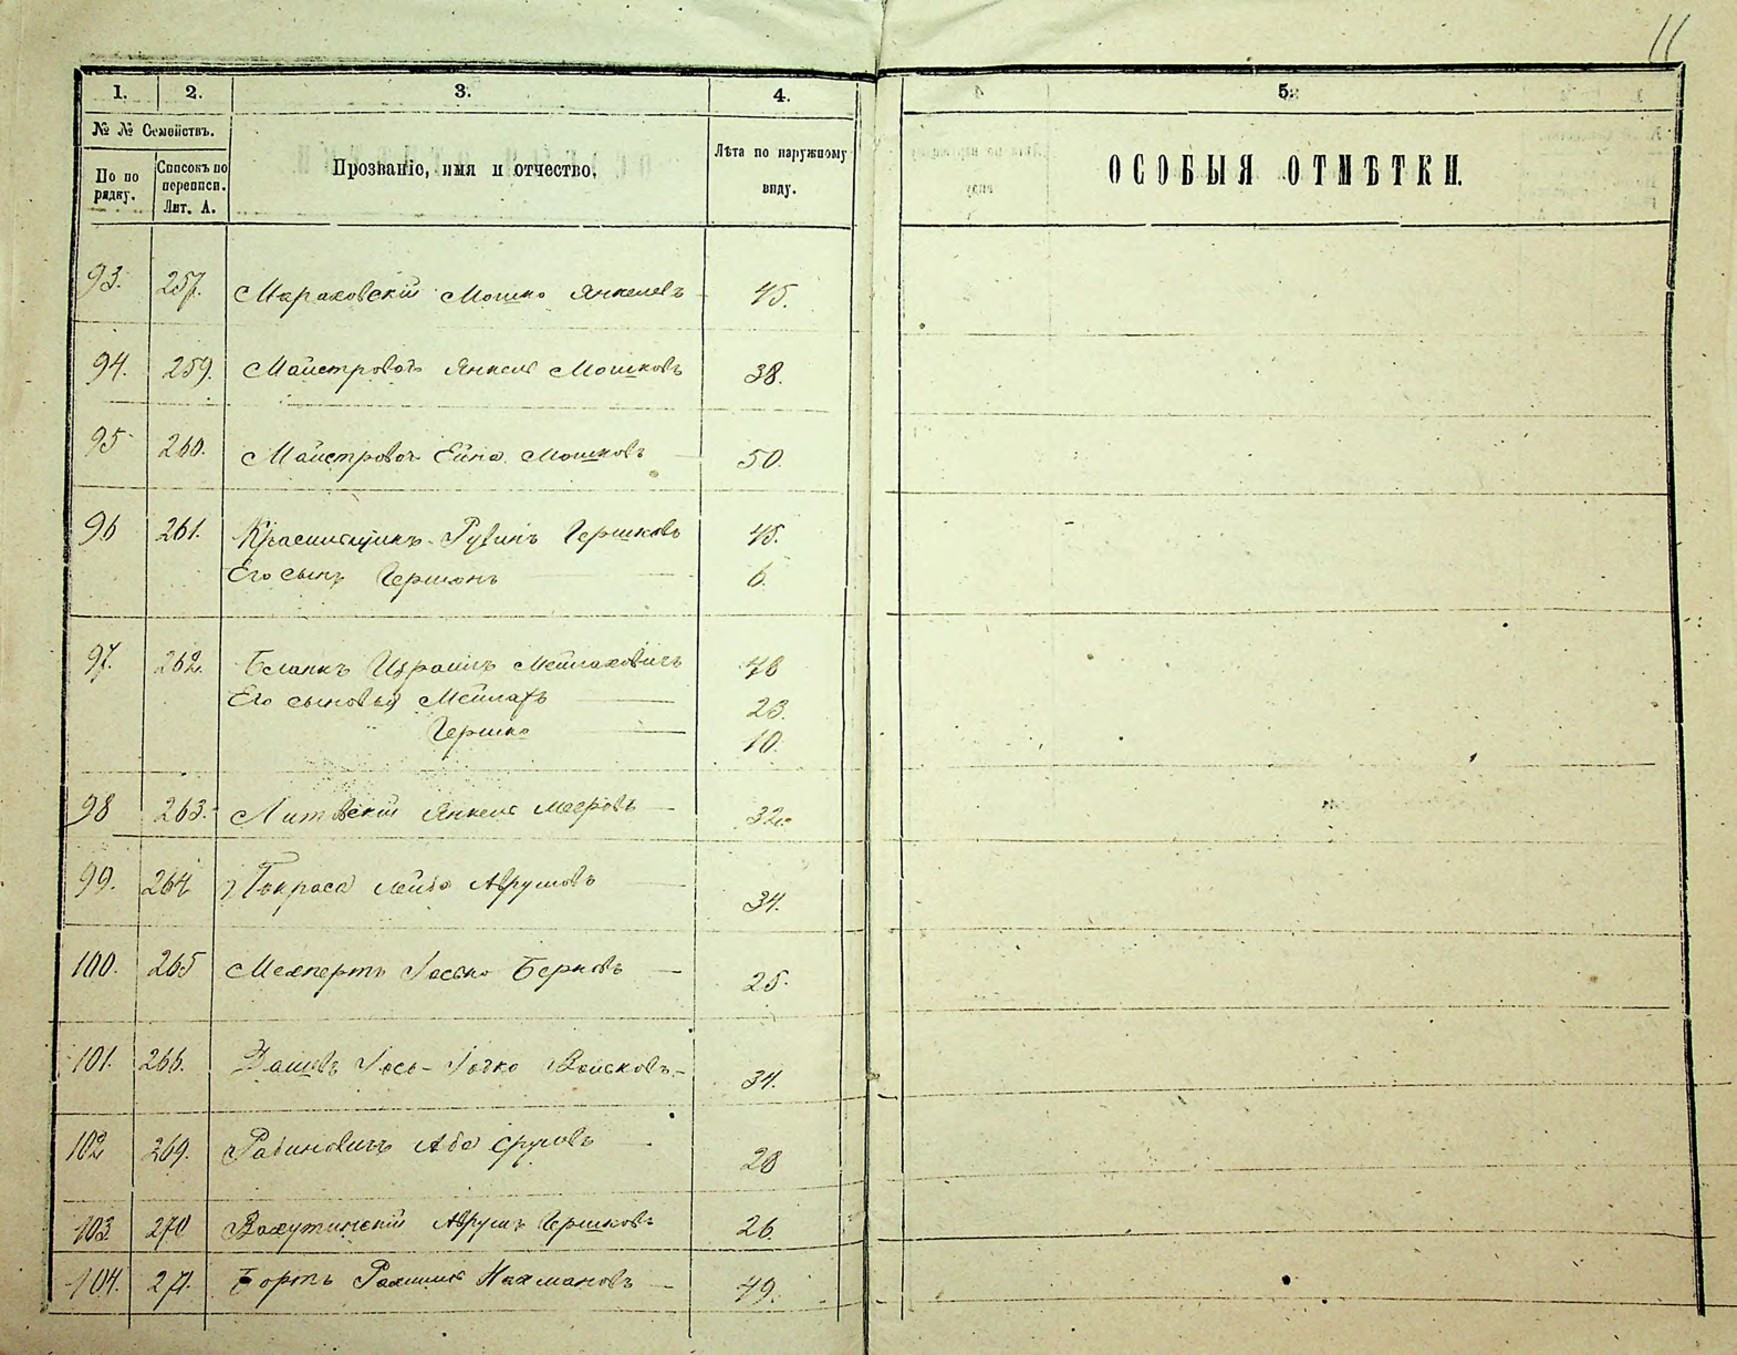 11
1. 2. 3. 4. 5.
№ № Семействъ.
По по рядку.
Списокъ по переписи. Лит. А.
Прозваніе, имя и отчество.
Лѣта по наружному виду.
ОСОБЫЯ ОТМѢТКИ.
93. 257. Мараховскій Мошко Янкелевъ 45.
94. 259. Майстровой Янкель Мошковъ 38.
95 260. Майстровой Ейно Мошковъ 50.
96 261. Красильщикъ Рувинъ Гершковъ 45.
Его сынъ Гершонъ 6.
97. 262. Бланкъ Израиль Мейлаховичъ 48
Его сыновья Мейлахъ 23.
Гершко 10.
98 263. Литовскій Янкель Мееровъ 32.
99. 264 Покраса Лейба Аврумовъ 34.
100. 265 Мехперть Іосько Берковъ 25.
101. 266. Іось- 34.
102 269. Рабиновичъ Аба Сруловъ 28
103. 270 Вахутинскій Аврумъ Гершковъ 26.
104. 271. Бортъ Рахмиль Нахмановъ 49.